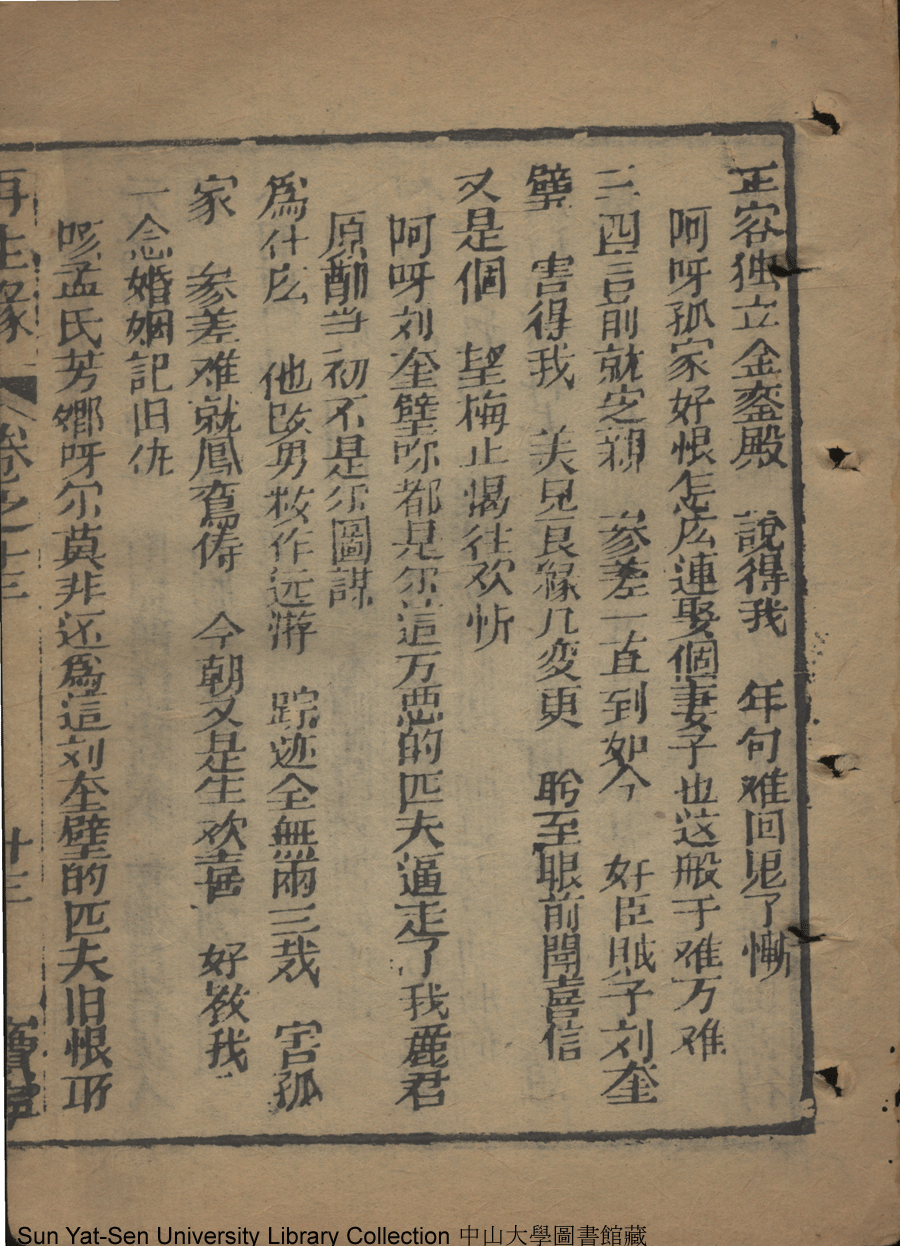 正容独立金銮殿　說得我　年句难回思了慚
阿呀孤家好恨怎庅連娶個妻子也这般千难万难
三四言前就定親　参差一直到如今　奸臣賊子刘奎
璧　害得我　美兄良緣几変更　盼至眼前聞喜信
又是個　望梅止愒往欢忻
阿呀刘奎璧呀都是尔這万悪的匹夫逼走了我麗君
原酧当初不是尔圖謀
為什庅　他改男救作远游　踪迹全無兩三烖　害孤
家　参差难就鳳鸞俦　今朝又是生欢喜　好教我
一念婚姻記旧仇
咳孟氏芳鄉呀尔莫非还為這刘奎璧的匹夫旧恨所
再生緣　卷之十三　十三
Sun Yat-Sen University Library Collection 中山大學圖書館藏